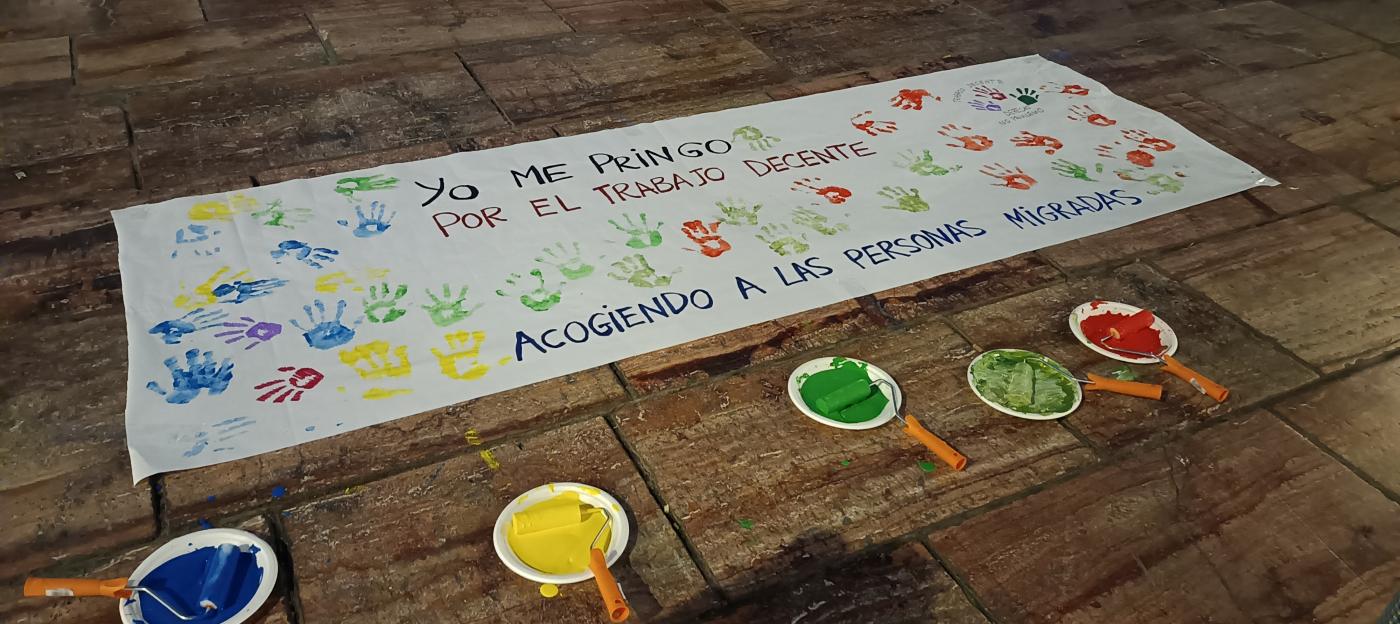 YO ME PRINGO
POR EL TRABAJO DECENTE
ACOGIENDO A LAS PERSONAS MIGRADAS